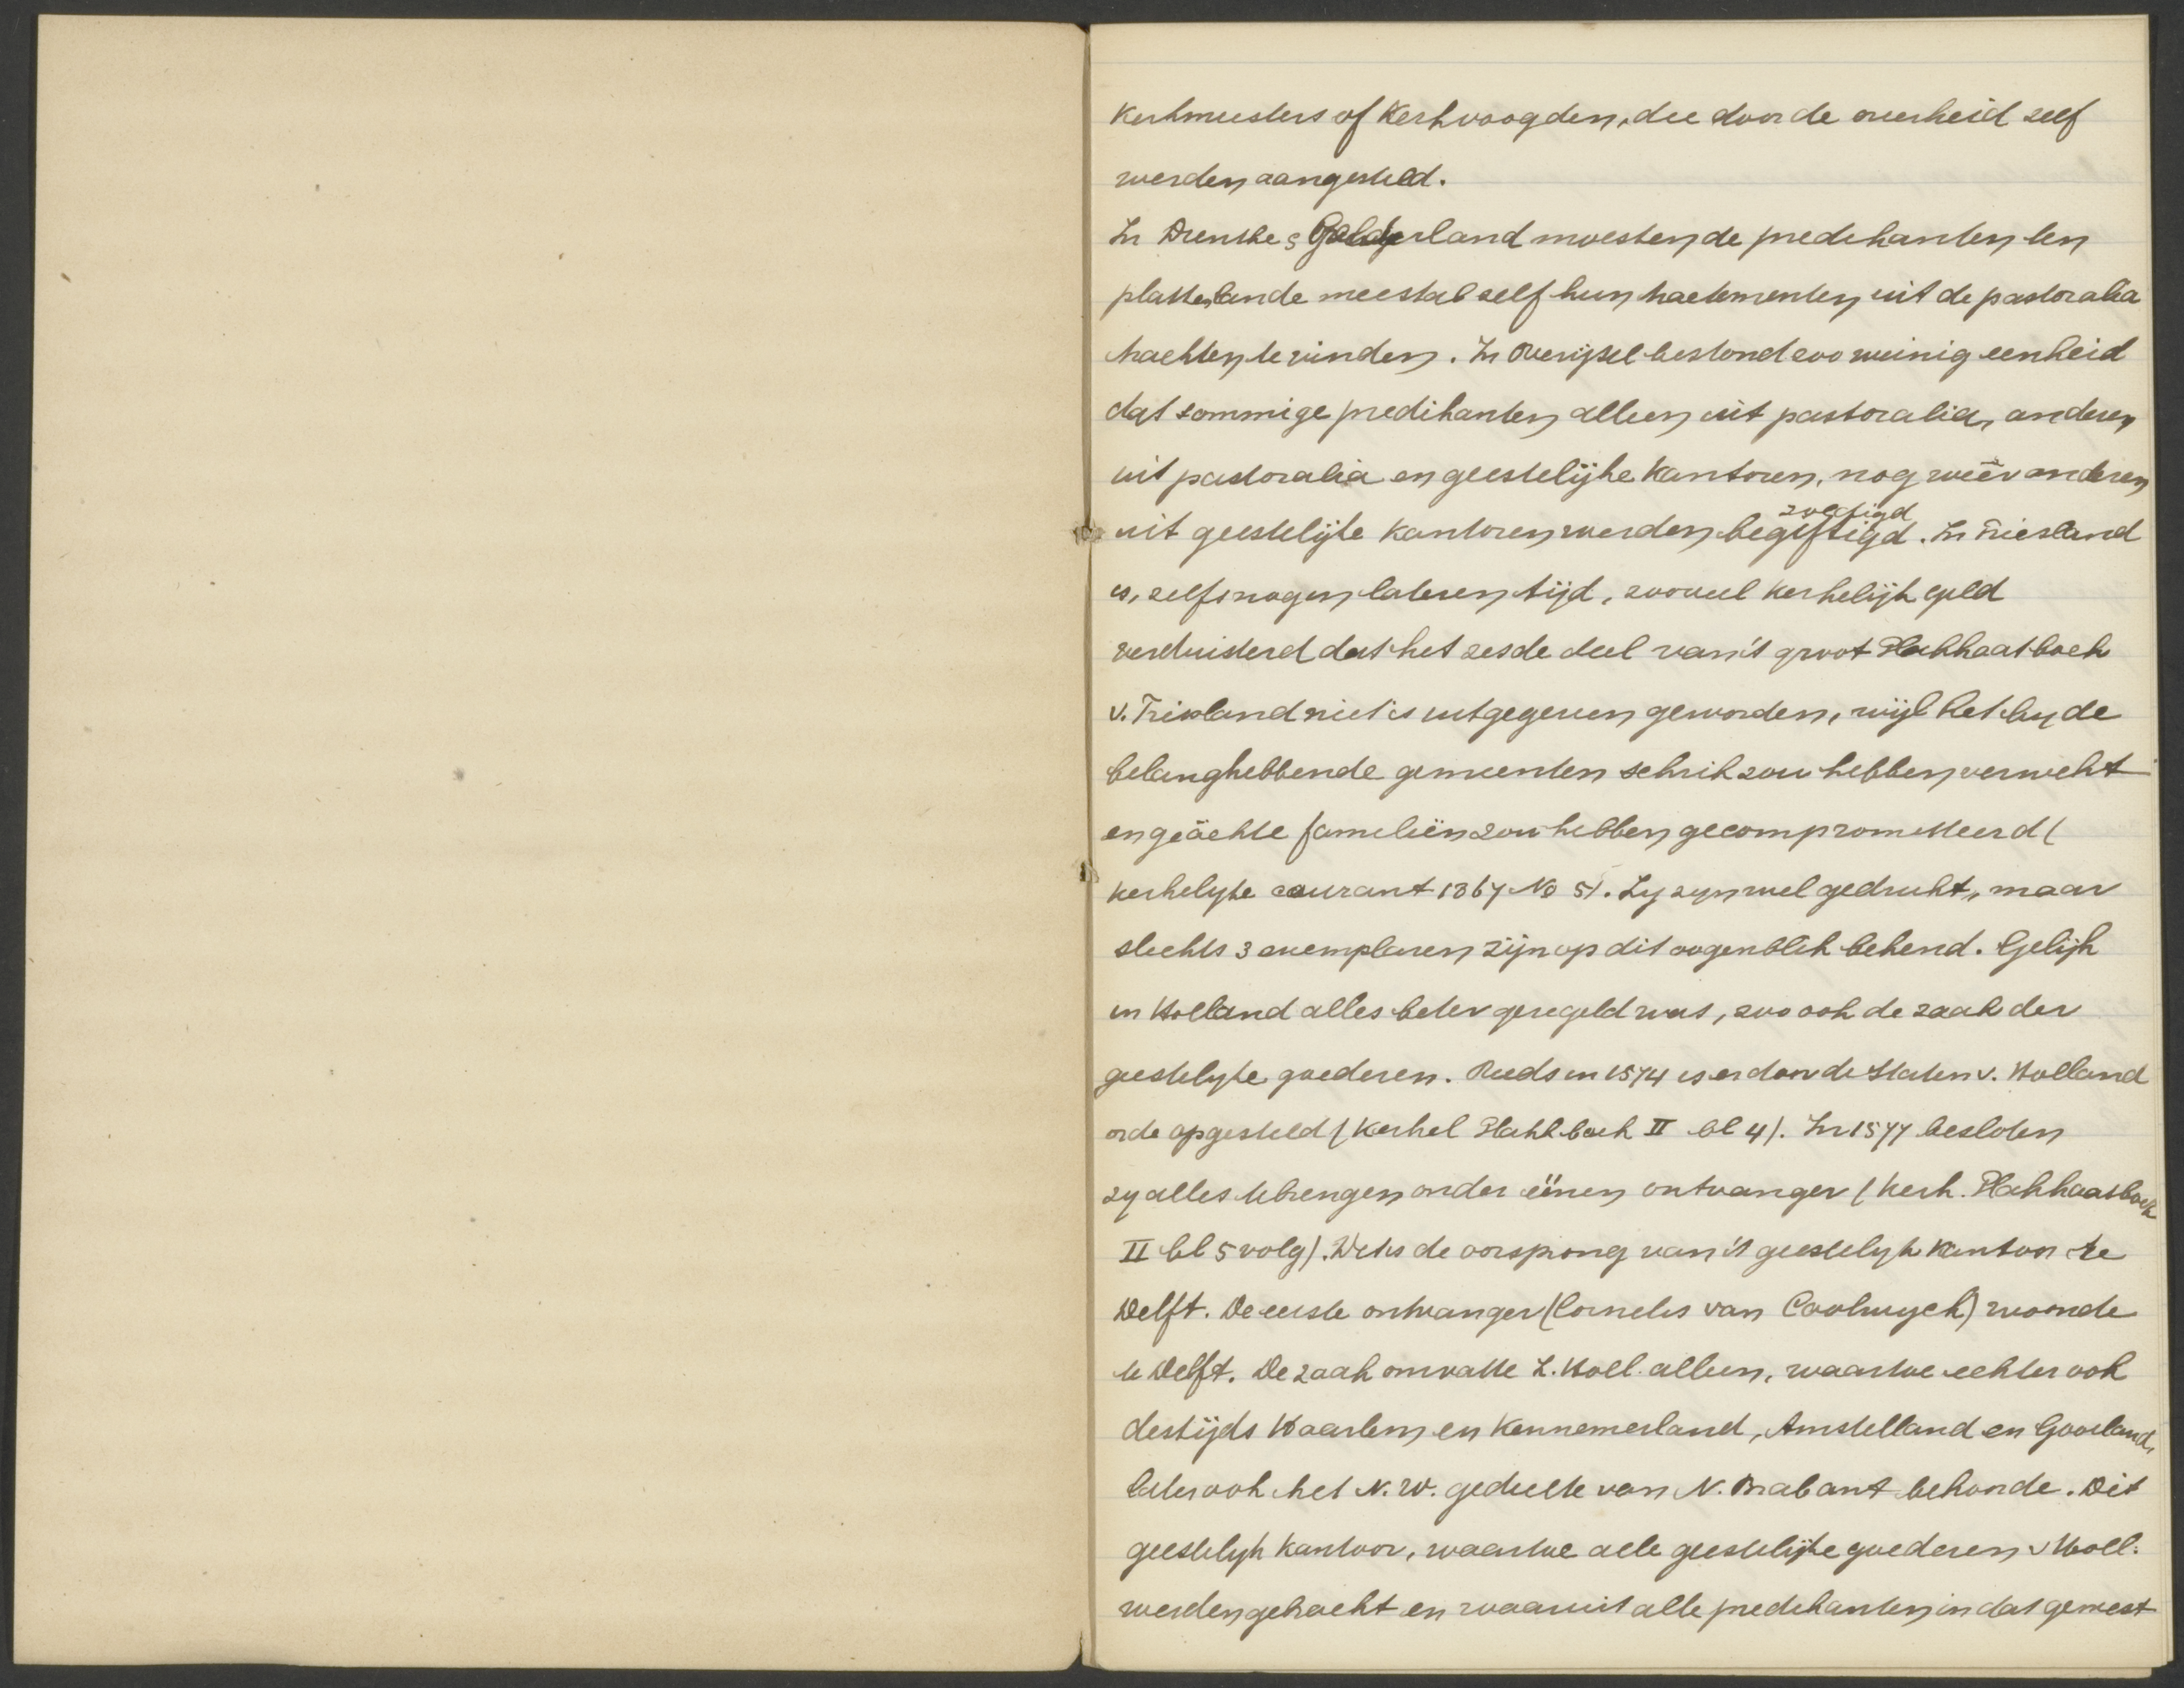 kerkmeesters of kerkvoogden, die door de overheid zelf
werden aangesteld.
In Drenthe & Gelderland moesten de predikanten ten
plattenlande meestal zelf hun tractementen uit de pastoralia
trachten te vinden. In Overijsel bestond zoo weinig eenheid
dat sommige predikanten alleen uit pastoralia, anderen
uit pastoralia en geestelijke kantoren, nog weer anderen
zoodigd
uit geestelijke kantoren werden begiftigd. In Friesland
is, zelfs nog in lateren tijd, zooveel kerkelijk geld
verduisterd dat het zesde deel van 't groot Plakkaatboek
v. Friesland niet is uitgegeven geworden, wijl het by de
belanghebbende gemeenten schrik zou hebben verwekt
en geächte familiën zou hebben gecompromitteerd (
kerkelyke courant 1867 No 51. Zy zyn wel gedrukt, maar
slechts 3 exemplaren zijn op dit oogenblik bekend. Gelijk
in Holland alles beter geregeld was, zoo ook de zaak der
geestelyke goederen. Reeds in 1574 is er door de Staten v. Holland
orde opgesteld (Kerkel Plakk.boek II bl 4). In 1577 besloten
zy alles te brengen onder éénen ontvanger (Kerk. Plakkaatboek
II bl 5 volg). Dit is de oorsprong van 't geestelyk kantoor te
Delft. De eerste ontvanger (Cornelis van Coolwyck) woonde
te Delft. De zaak omvatte Z. Holl. alleen, waartoe echter ook
destijds Haarlem en Kennemerland, Amstelland en Gooiland,
later ook het N.W. gedeelte van N. Brabant behoorde. Dit
geestelyk kantoor, waartoe alle geestelijke goederen v Holl.
werden gebracht en waaruit alle predikanten in dat gewest